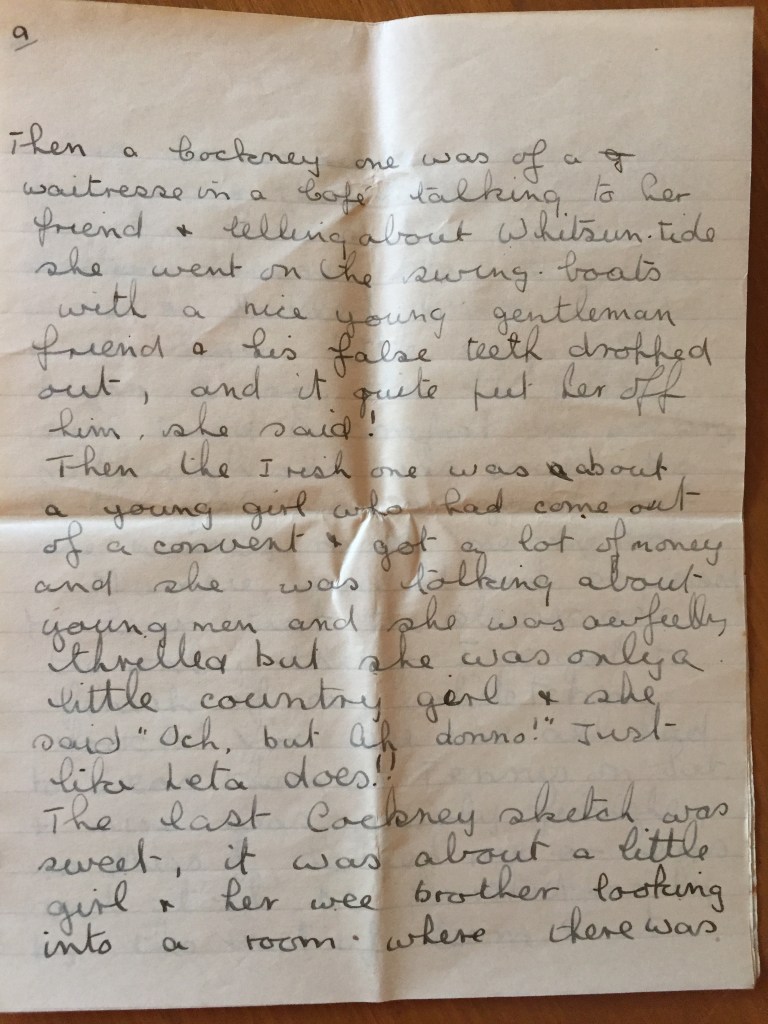 9
Then a Cockney one was of a
waitresse in a Café talking to her
friend & telling about Whitsun.tide
she went on the swing-boats
with a nice young gentleman
friend & his false teeth dropped
out, and it quite put her off
him, she said!
Then the Irish one was about
a young girl who had come out
of a convent & got a lot of money
and she was talking about
young men and she was awfully
thrilled but she was only a
little country girl & she
said "Och, but Ah donno!" Just
like Leta does!!
The last Cockney sketch was
sweet, it was about a little
girl & her wee brother looking
into a room where there was